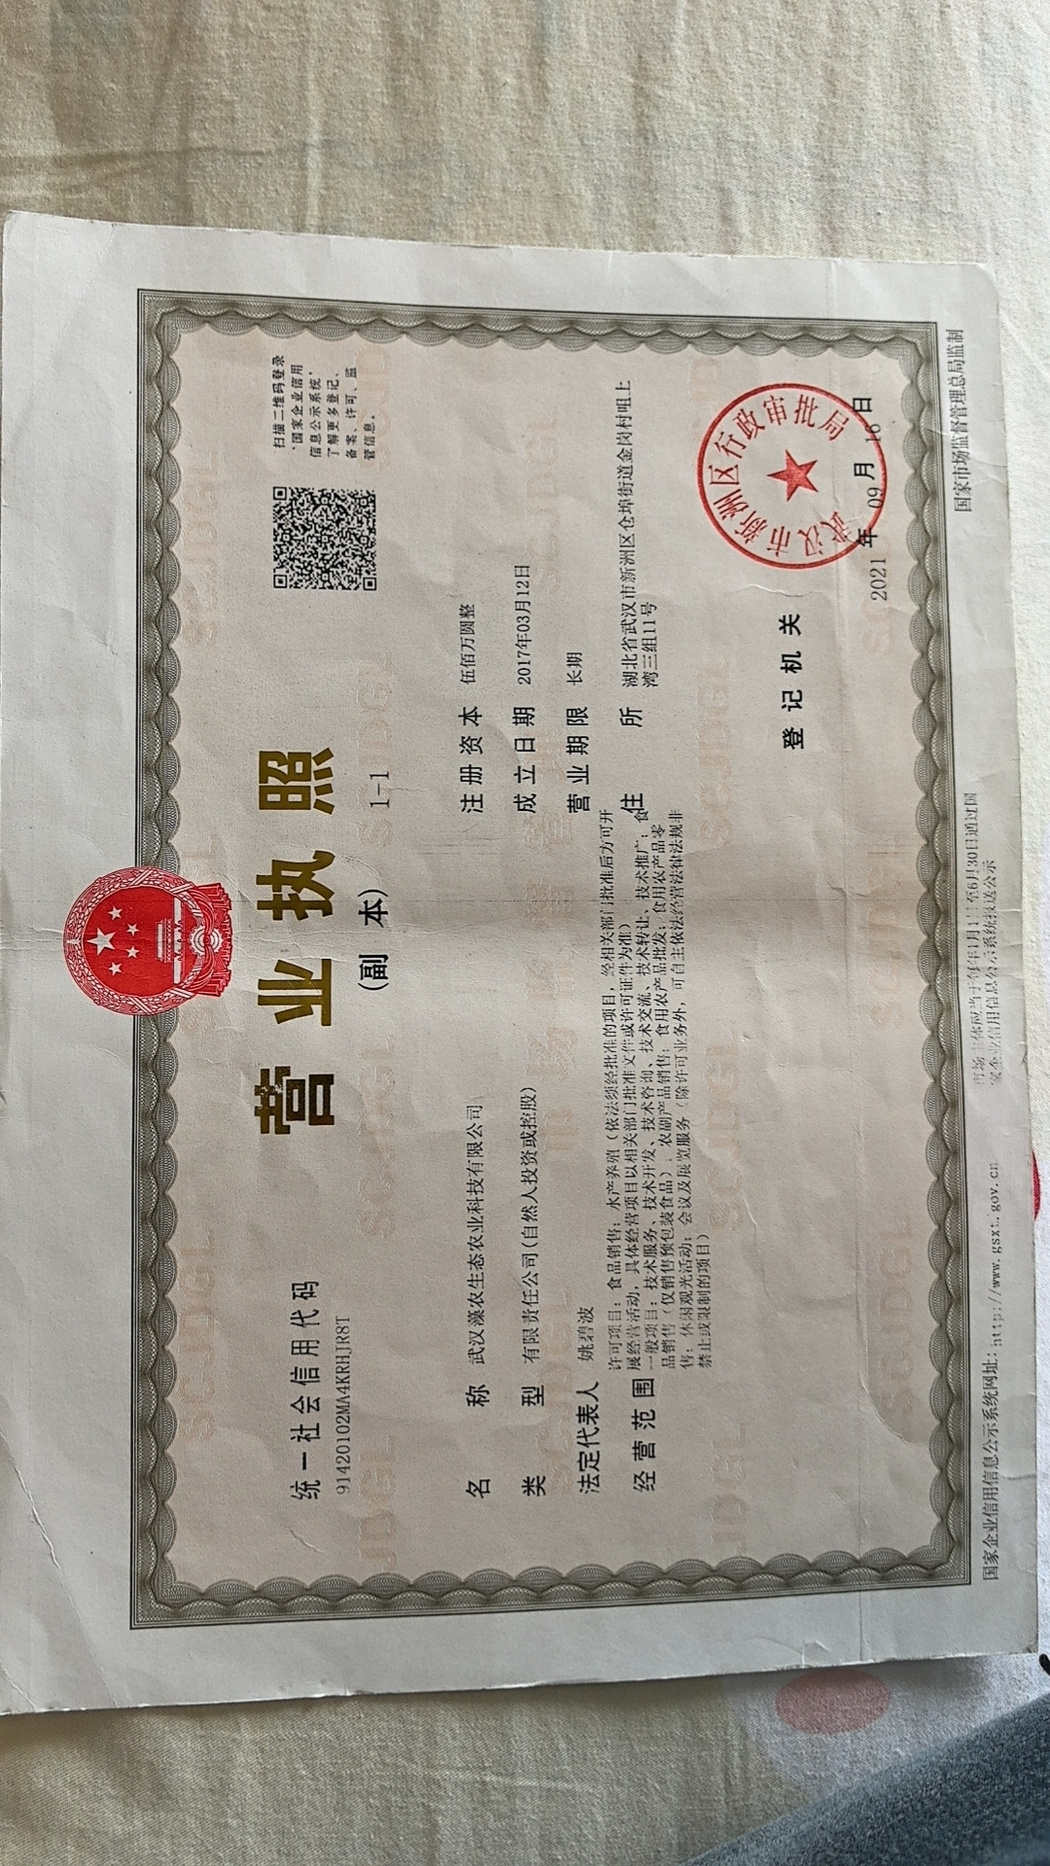 营业执照
(副 本) 1-1
统一社会信用代码
91420102MA4KRHJR8T
扫描二维码登录
‘国家企业信用
信息公示系统’
了解更多登记、
备案、许可、监
管信息。
名 称 武汉藻农生态农业科技有限公司
类 型 有限责任公司(自然人投资或控股)
法定代表人 姚碧波
经营范围 许可项目:食品销售;水产养殖(依法须经批准的项目,经相关部门批准后方可开
展经营活动,具体经营项目以相关部门批准文件或许可证件为准)
一般项目:技术服务、技术开发、技术咨询、技术交流、技术转让、技术推广;食
品销售(仅销售预包装食品),农副产品销售;食用农产品批发;食用农产品零
售;休闲观光活动;会议及展览服务(除许可业务外,可自主依法经营法律法规非
禁止或限制的项目)
注册资本 伍佰万圆整
成立日期 2017年03月12日
营业期限 长期
住 所 湖北省武汉市新洲区仓埠街道金岗村咀上
湾三组11号
登记机关
武汉市新洲区行政审批局
2021 年 09 月 16 日
国家企业信用信息公示系统网址:http://www.gsxt.gov.cn
市场主体应当于每年1月1日至6月30日通过国
家企业信用信息公示系统报送公示
国家市场监督管理总局监制